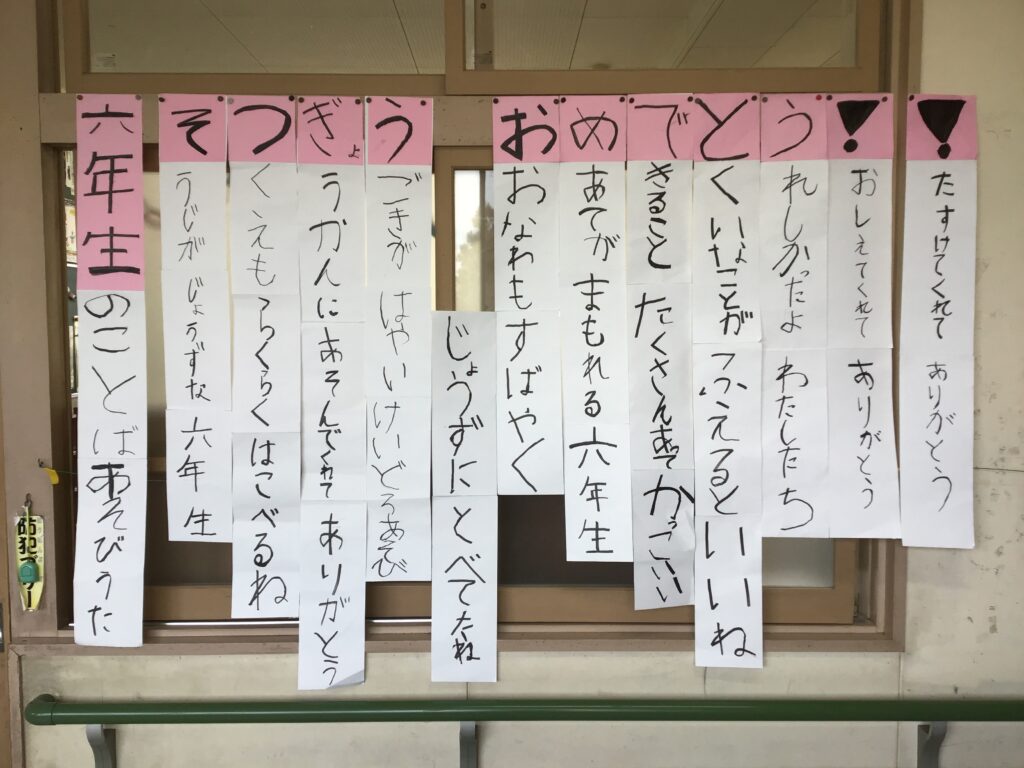 六年生のことばあそびうた
そうじがじょうずな六年生
つくえもらくらくはこべるね
ぎょうかんにあそんでくれてありがとう
うごきがはやいけいどろあそび
おおなわもすばやく
じょうずにとべてたね
めあてがまもれる六年生
できることたくさんあってかっこいい
とくいなことがふえるといいね
うれしかったよわたしたち
！おしえてくれてありがとう
！たすけてくれてありがとう
防犯